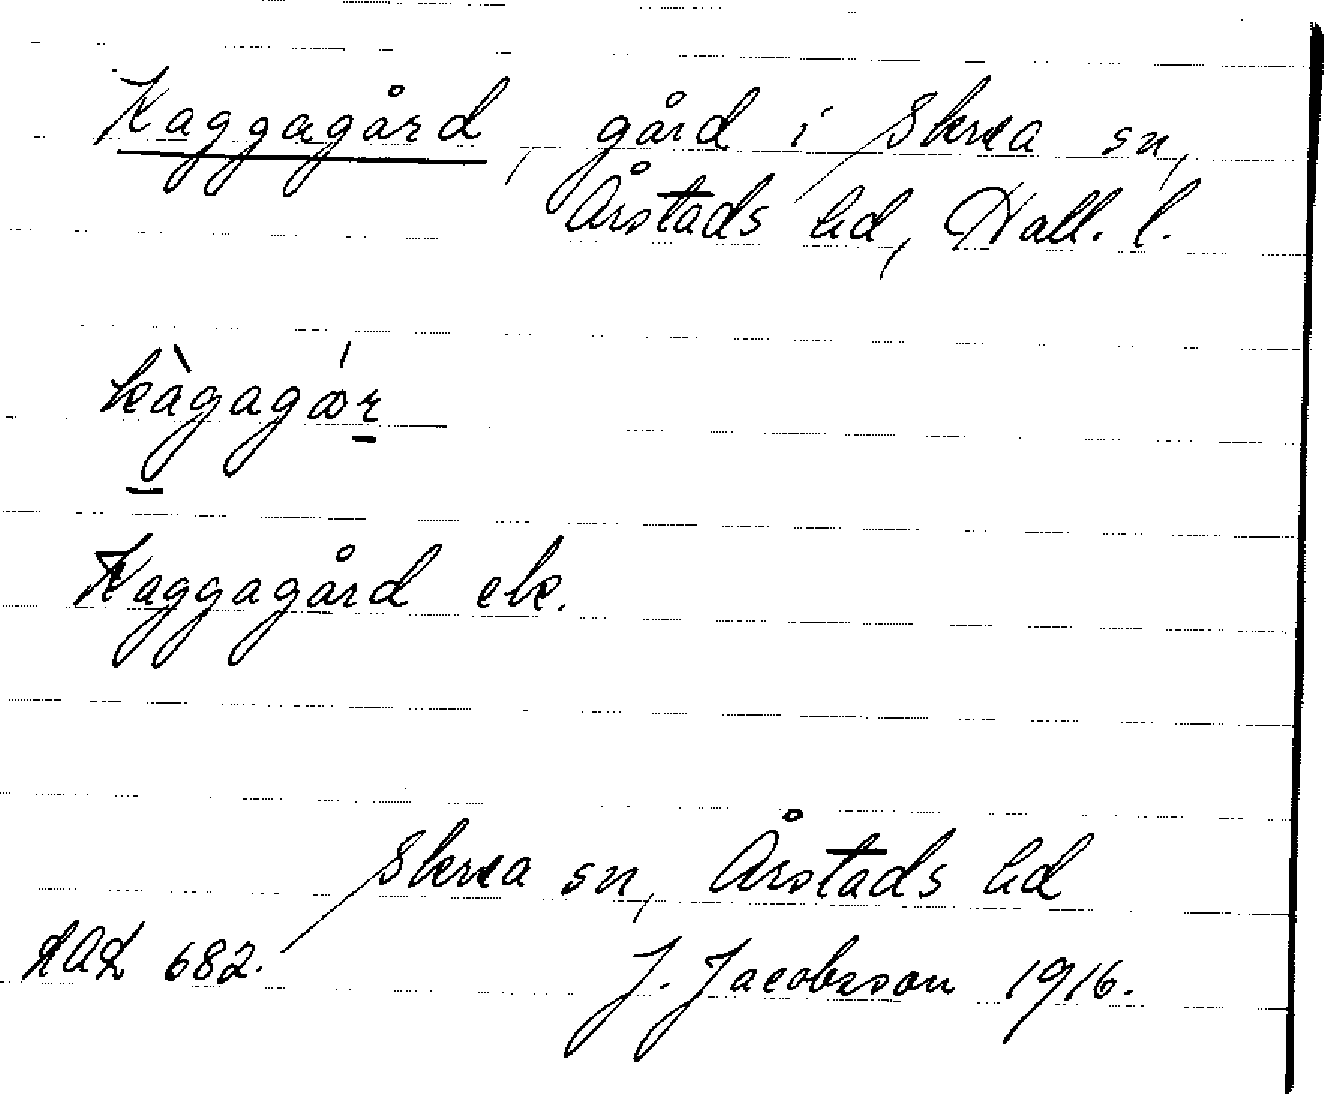 Kaggagård, gård i Skrea sn,
Årstads hd, Hall. l.
kàgagớr
Kaggagård ek.
Skrea sn, Årstads hd
682.
J. Jacobsson 1916.